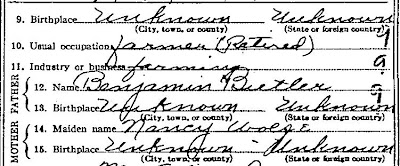 9. Birthplace Unknown Unknown
(City, town, or county) (State or foreign country)
10. Usual occupation farmer (Retired) 9
11. Industry or business farming 9
MOTHER FATHER
12. Name Benjamin Butler 9
13. Birthplace Unknown Unknown
(City, town, or county) (State or foreign country)
14. Maiden name Nancy Wolfe
15. Birthplace Unknown Unknown
(City, town, or county) (State or foreign country)